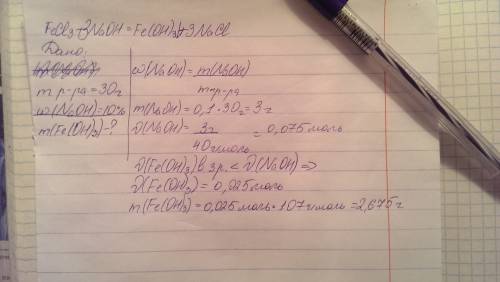 FeCl3+3NaOH=Fe(OH)3↓+3NaCl
Дано:
m р-ра=30г
ω(NaOH)=10%
m(Fe(OH)3)-?
ω(NaOH)=m(NaOH)
m р-ра
m(NaOH)=0,1·30г=3г
ν(NaOH)=3г = 0,075моль
40г/моль
ν(Fe(OH)3) в 3р. < ν(NaOH) ⇒
ν(Fe(OH)3)=0,025моль
m(Fe(OH)3)=0,025моль·107г/моль=2,675г